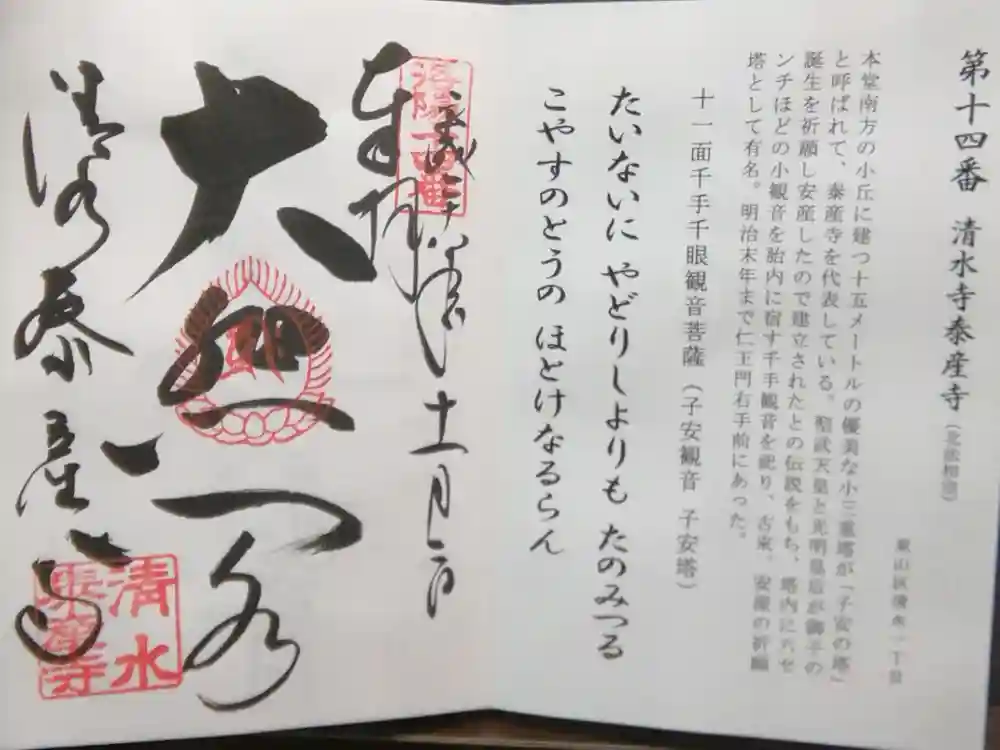 第十四番 清水寺泰産寺（北法相宗）
東山区清水一丁目
本堂南方の小丘に建つ十五メートルの優美な小三重塔が「子安の塔」
と呼ばれて、泰産寺を代表している。聖武天皇と光明皇后が御子の
誕生を祈願し安産したので建立されたとの伝説をもち、塔内に六セ
ンチほどの小観音を胎内に宿す千手観音を祀り、古来、安産の祈願
塔として有名。明治末年まで仁王門右手前にあった。
十一面千手千眼観音菩薩（子安観音 子安塔）
たいないに やどりしよりも たのみつる
こやすのとうの ほとけなるらん
洛陽十四番
奉拝
十一月
大悲閣
清水泰産寺
清水
泰産寺